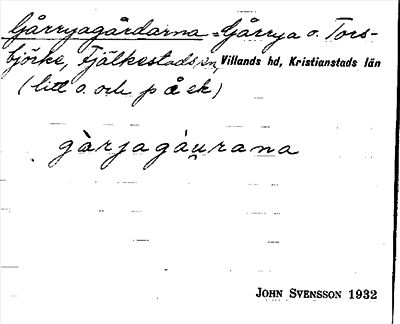 Gårryagårdarna = Gårrya o. Tors-
björke, Fjälkestads sn, Villands hd, Kristianstads län
(litt o. och på ek)
gàrjagáu̯rana
JOHN SVENSSON 1932